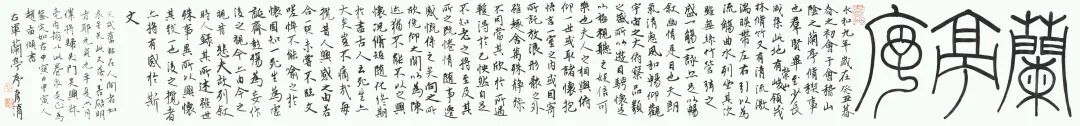 蘭亭序
永和九年歲在癸丑暮
春之初會于會稽山
陰之蘭亭脩稧事
也羣賢畢至少長
咸集此地有峻領茂
林脩竹又有清流激
湍暎帶左右引以為
流觴曲水列坐其次
雖無絲竹管弦之
盛一觴一詠亦足以暢
敘幽情是日也天朗
氣清惠風和暢仰觀
宇宙之大俯察品類
之盛所以遊目騁懷足
以極視聽之娛信可
樂也夫人之相與俯
仰一世或取諸懷抱
悟言一室之內或因寄
所託放浪形骸之外
雖趣舍萬殊靜躁
不同當其欣於所遇
蹔得於己快然自足
不知老之將至及其
所之既惓情隨事遷
感慨係之矣向之所
欣俛仰之間以為陳
迹猶不能不以之興
懷況脩短隨化終期
於盡古人云死生亦
大矣豈不痛哉每
攬昔人興感之由若
合一契未嘗不臨文
嗟悼不能喻之於
懷固知一死生為虛
誕齊彭殤為妄作
後之視今亦由今之
視昔悲夫故列敘
時人錄其所述雖世
殊事異所以興懷
其致一也後之攬者
亦將有感於斯
文
右軍蘭亭序